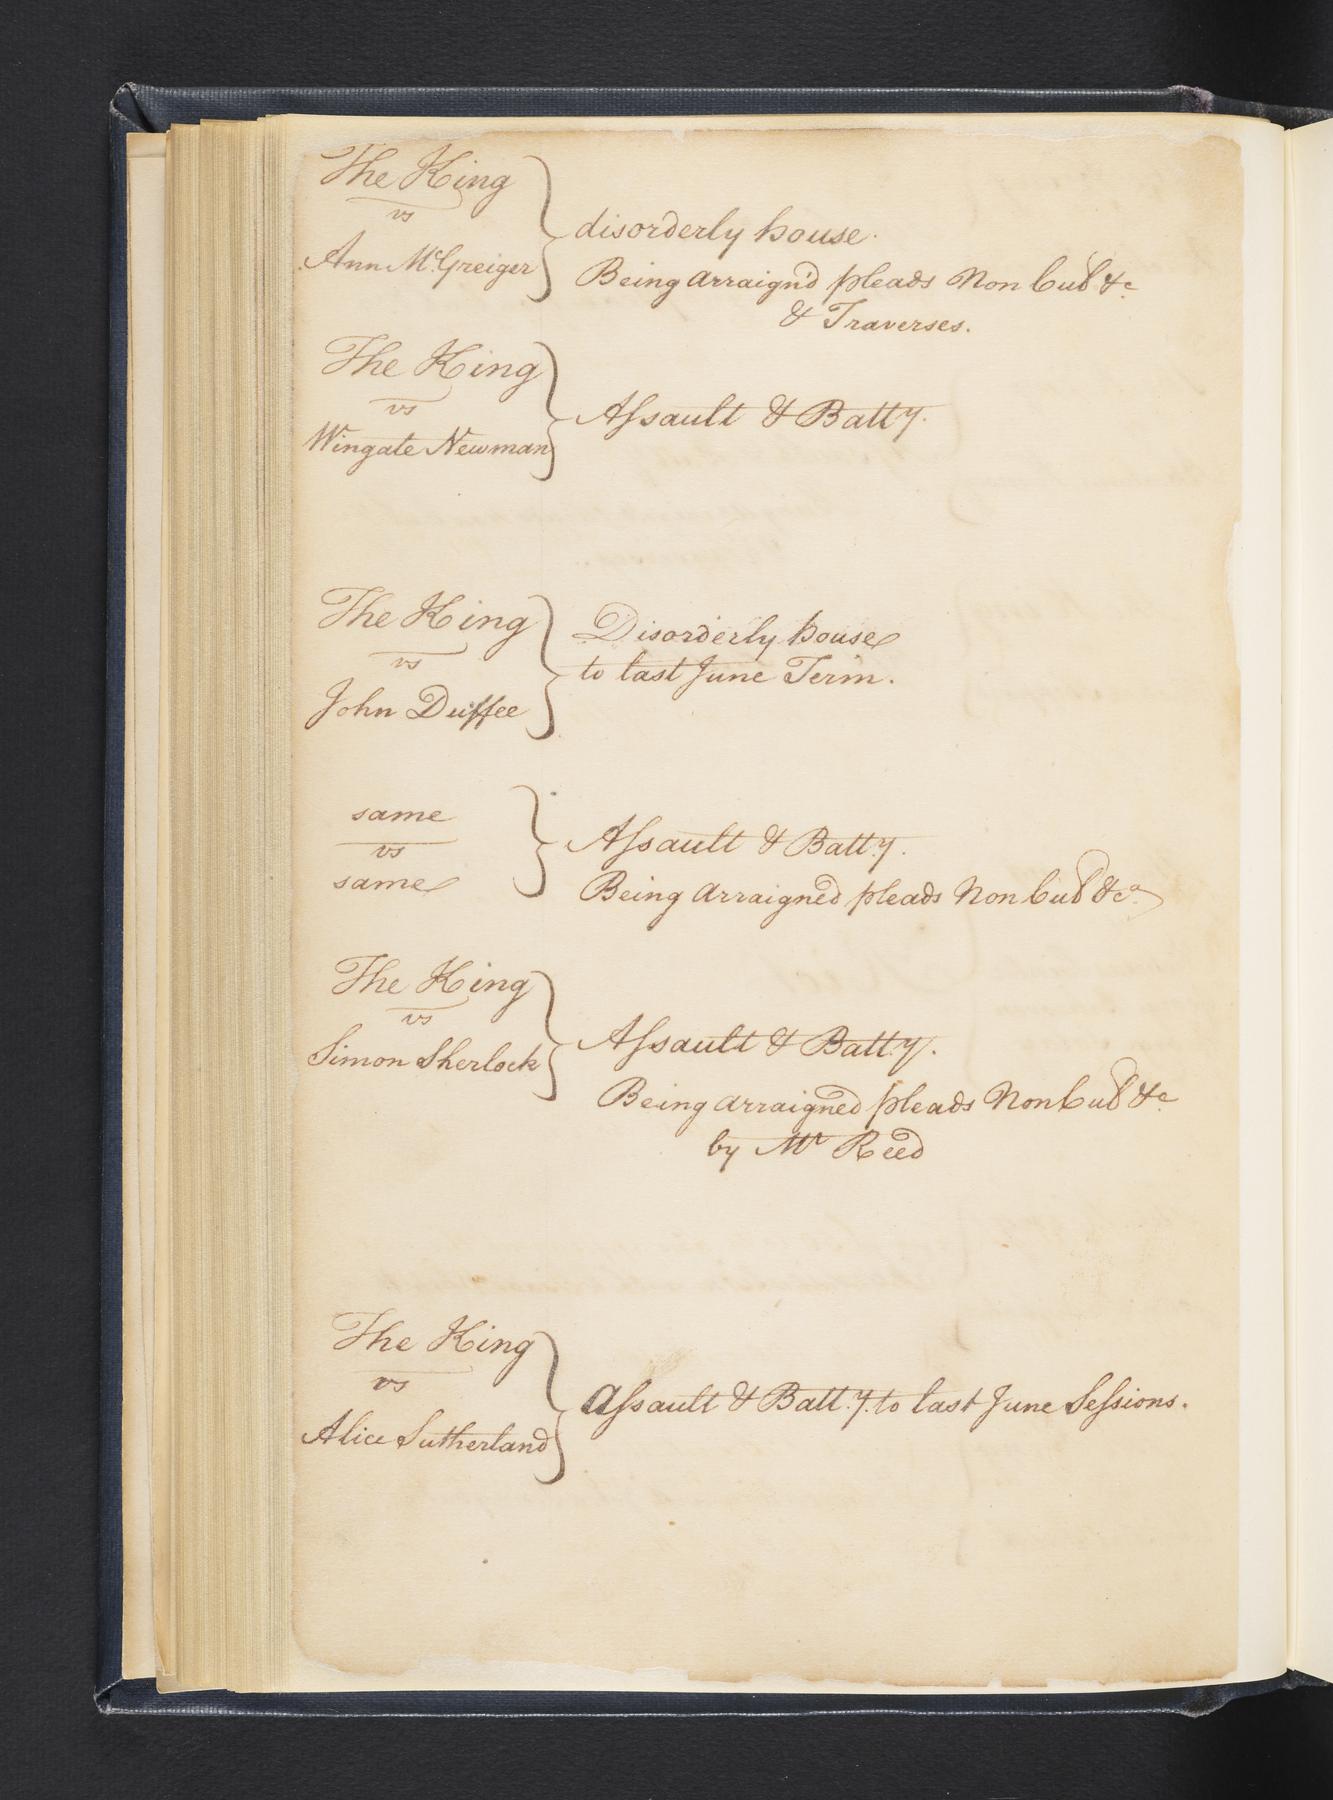 The King
vs
Ann McGreiger
disorderly house.
Being arraign'd pleads Non Cul &c
& Traverses.
The King
vs
Wingate Newman
Assault & Batt.y.
The King
vs
John Duffee
Disorderly house
to last June Term.
same
vs
same
Assault & Batt.y.
Being arraigned pleads Non Cul &ca
The King
vs
Simon Sherlock
Assault & Batt.y.
Being arraigned pleads Non Cul &c
by Mr Reed
The King
vs
Alice Sutherland
Assault & Batt.y. to last June Sessions.